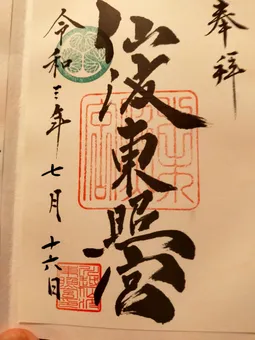 奉拝
仙波東照宮
令和三年七月十六日